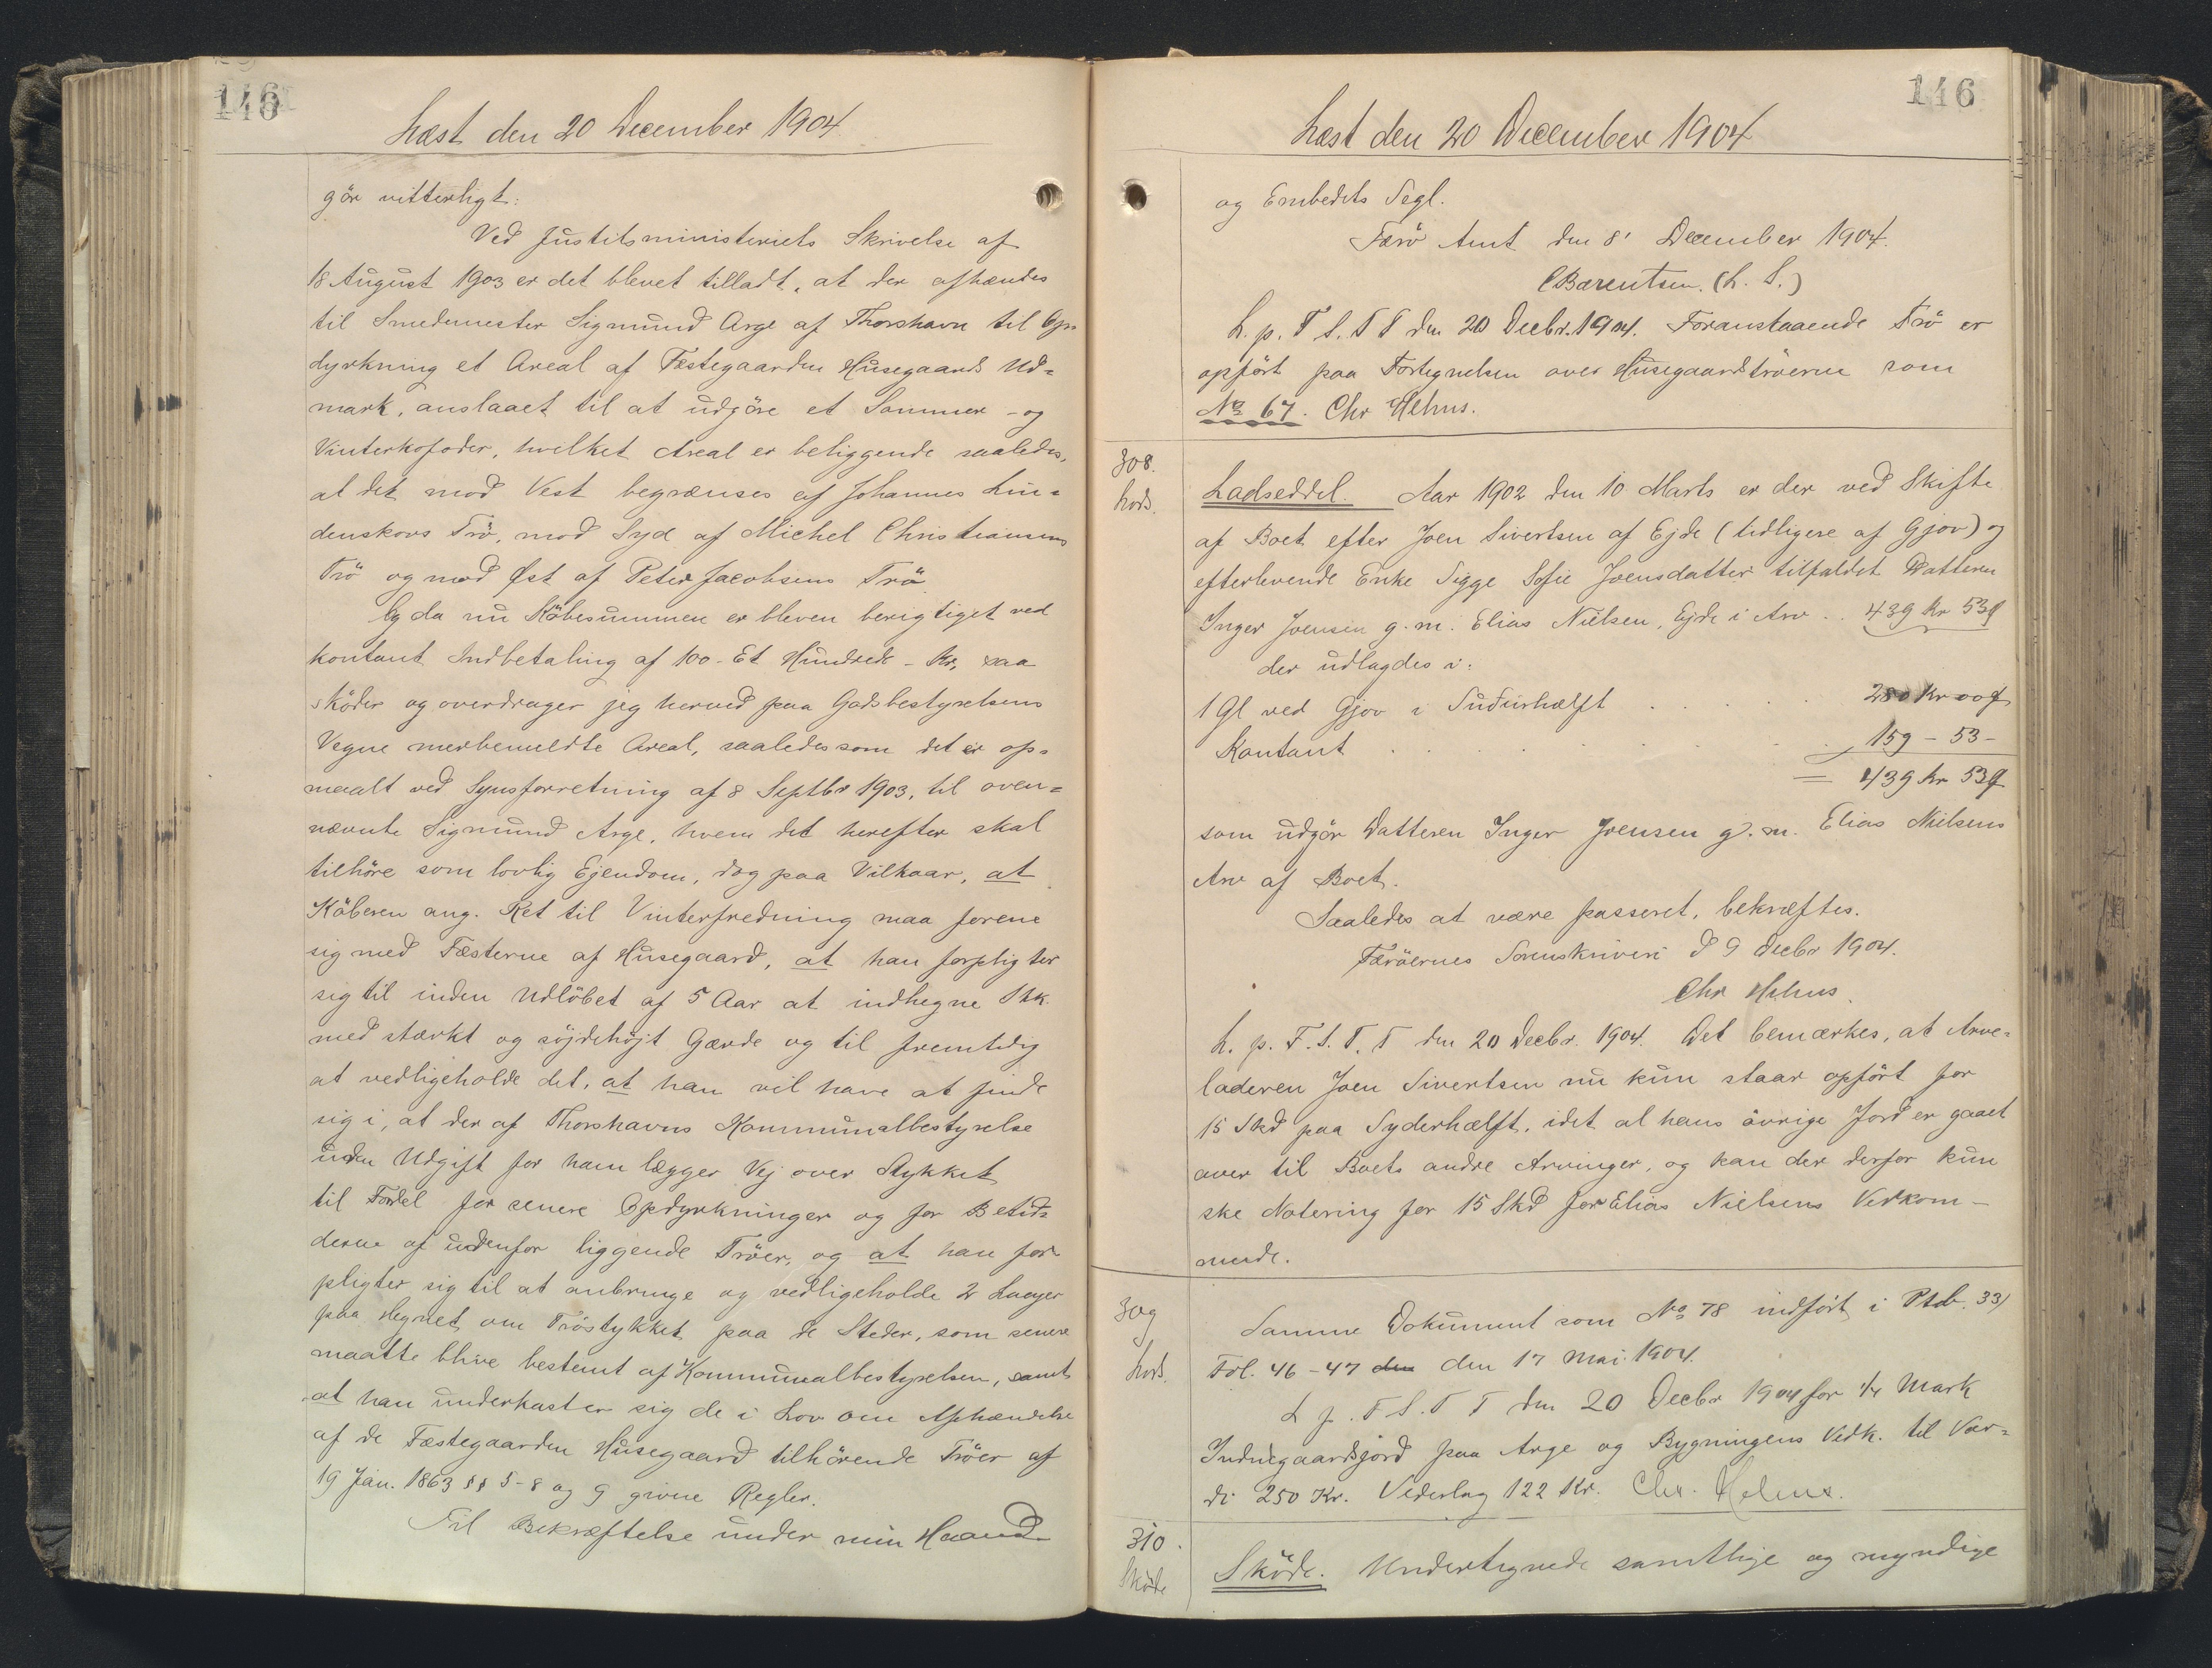 146
Læst den 20 December 1904
gör vitterligt:
Ved Justitsministeriets Skrivelse af
18 August 1903 er det blevet tilladt, at der afhændes
til Smedemester Sigmund Arge af Thorshavn til Op-
dyrkning et Areal af Fæstegaarden Husegaards Ud-
mark, anslaaet til at udgöre et Sommer- og
Vinterkofoder, hvilket Areal er beliggende saaledes,
at det mod Vest begrænses af Johannes Lin-
denskovs Trö, mod Syd af Michel Christiansens
Trö og mod Øst af Peter Jacobsens Trö.
Og da nu Köbesummen er bleven berigtiget ved
kontant Indbetaling af 100 - Et Hundrede - Kr, saa
sköder og overdrager jeg herved paa Godsbestyrelsens
Vegne merbemeldte Areal, saaledes som det er op-
maalt ved Synsforretning af 8 Septbr 1903, til oven-
nævnte Sigmund Arge, hvem det herefter skal
tilhöre som lovlig Ejendom, dog paa Vilkaar, at
Köberen ang. Ret til Vinterfredning maa forene
sig med Fæsterne af Husegaard, at han forpligter
sig til inden Udlöbet af 5 Aar at indhegne Stk.
med stærkt og söjdehöjt Gærde og til fremtidig
at vedligeholde det, at han vil have at finde
sig i, at der af Thorshavns Kommunalbestyrelse
uden Udgift for ham lægges Vej over Stykket
til Fordel for senere Opdyrkninger og for Besid-
derne af udenfor liggende Tröer, og at han for-
pligter sig til at anbringe og vedligeholde 2 Laager
paa Hegnet om Tröstykket paa de Steder, som senere
maatte blive bestemt af Kommunalbestyrelsen, samt
at han underkaster sig de i Lov om Afhændelse
af de Fæstegaarden Husegaard tilhörende Tröer af
19 Jan. 1863 §§ 5-8 og 9 givne Regler.
Til Bekræftelse under min Haand
146
Læst den 20 December 1904
og Embedets Segl.
Færö Amt den 8' December 1904.
CBærentsen. (L. S.)
L. p. F. S. T. T den 20 Decbr. 1904. Foranstaaende Trö er
opfört paa Fortegnelsen over Husegaardströerne som
No 67. Chr Helms.
308.
Lods.
Lodseddel. Aar 1902 den 10 Marts er der ved Skifte
af Boet efter Joen Sivertsen af Ejde (tidligere af Gjov) og
efterlevende Enke Sigge Sofie Joensdatter tilfaldet Datteren
Inger Joensen g. m. Elias Nielsen, Ejde i Arv . . 439 Kr 53 Ø
der udlagdes i:
1 Gl ved Gjov i Sudurhælft . . . . . 280 Kr 00 Ø
Kontant . . . . . . . . 159 - 53 -
= 439 Kr 53 Ø
som udgör Datteren Inger Joensen g. m. Elias Nielsens
Arv af Boet.
Saaledes at være passeret, bekræftes.
Færöernes Sorenskriveri d 9 Decbr 1904.
Chr Helms.
L. p. F. S. T. T den 20 Decbr. 1904. Det bemærkes, at Arve-
laderen Joen Sivertsen nu kun staar opfört for
15 Skd paa Syderhælft, idet al hans övrige Jord er gaaet
over til Boets andre Arvinger, og kan der derfor kun
ske Notering for 15 Skd for Elias Nielsens Vedkom-
mende.
309
Lods.
Samme Dokument som No 78 indfört i Ptob. 33/
Fol. 46-47 den den 17 Mai 1904.
L p. F S. T T den 20 Decbr 1904 for 1/4 Mark
Indvigaardsjord paa Arge og Bygningens Vedk. til Vær-
di 250 Kr. Vederlag 122 Kr. Chr. Helms.
310.
Sköde
Sköde. Undertegnede samtlige og myndige